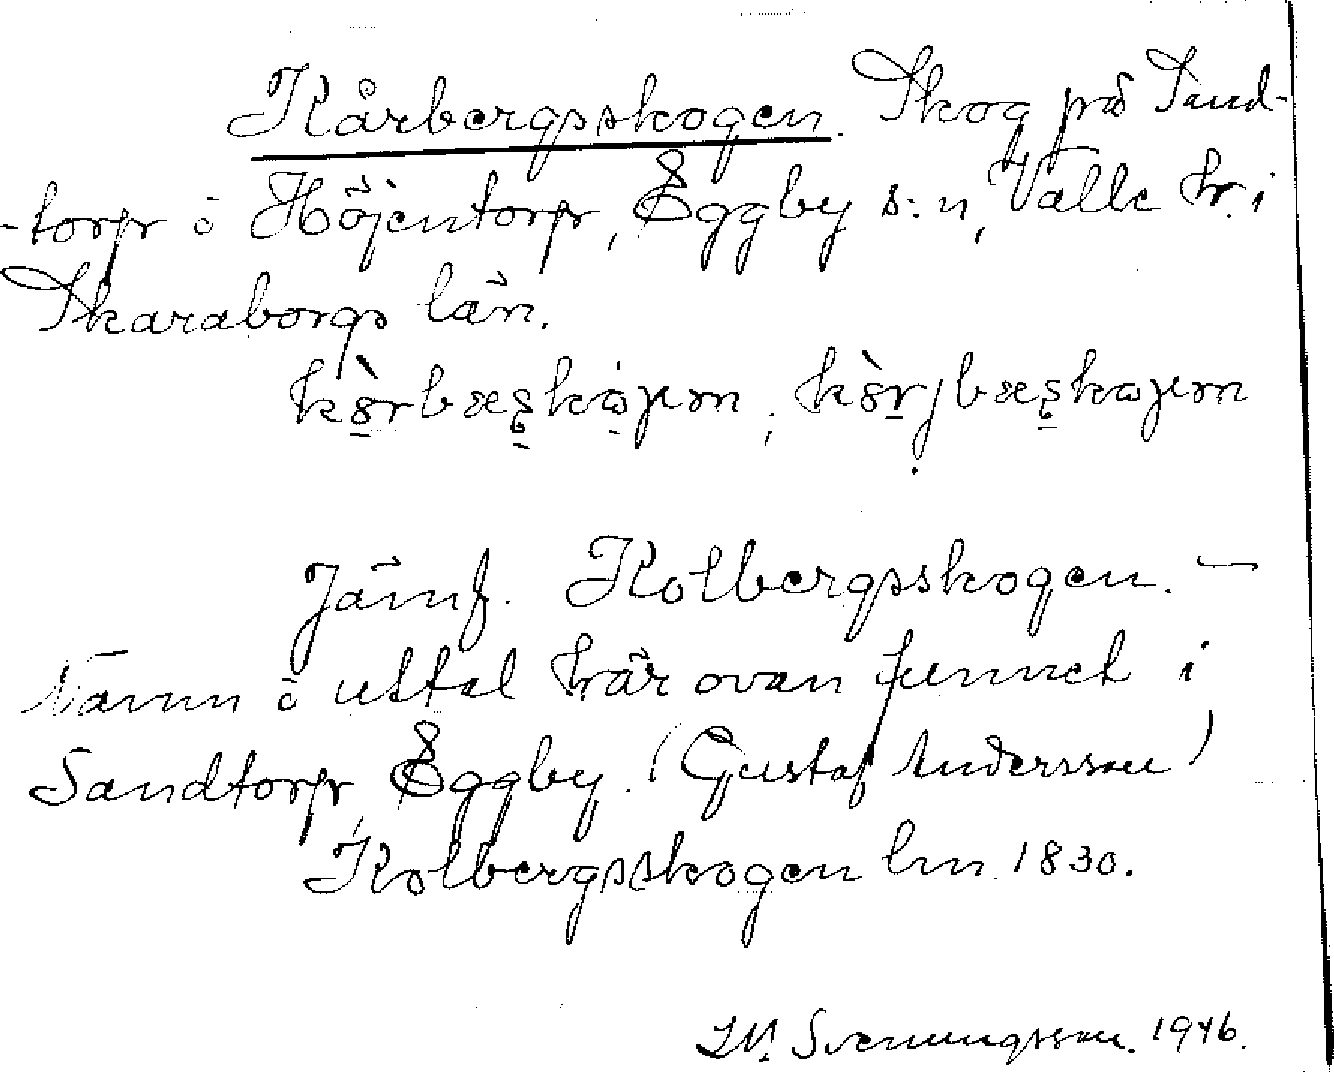 Kårbergsskogen. Skog på Sand-
-torp o Höjentorp, Eggby s:n, Valle hr. i
Skaraborgs län.
Jämf. Kolbergsskogen. —
Namn o uttal här ovan funnet i
Sandtorp, Eggby. (Gustaf Andersson)
Kolbergsskogen lm 1830.
Svenungsson. 1946.